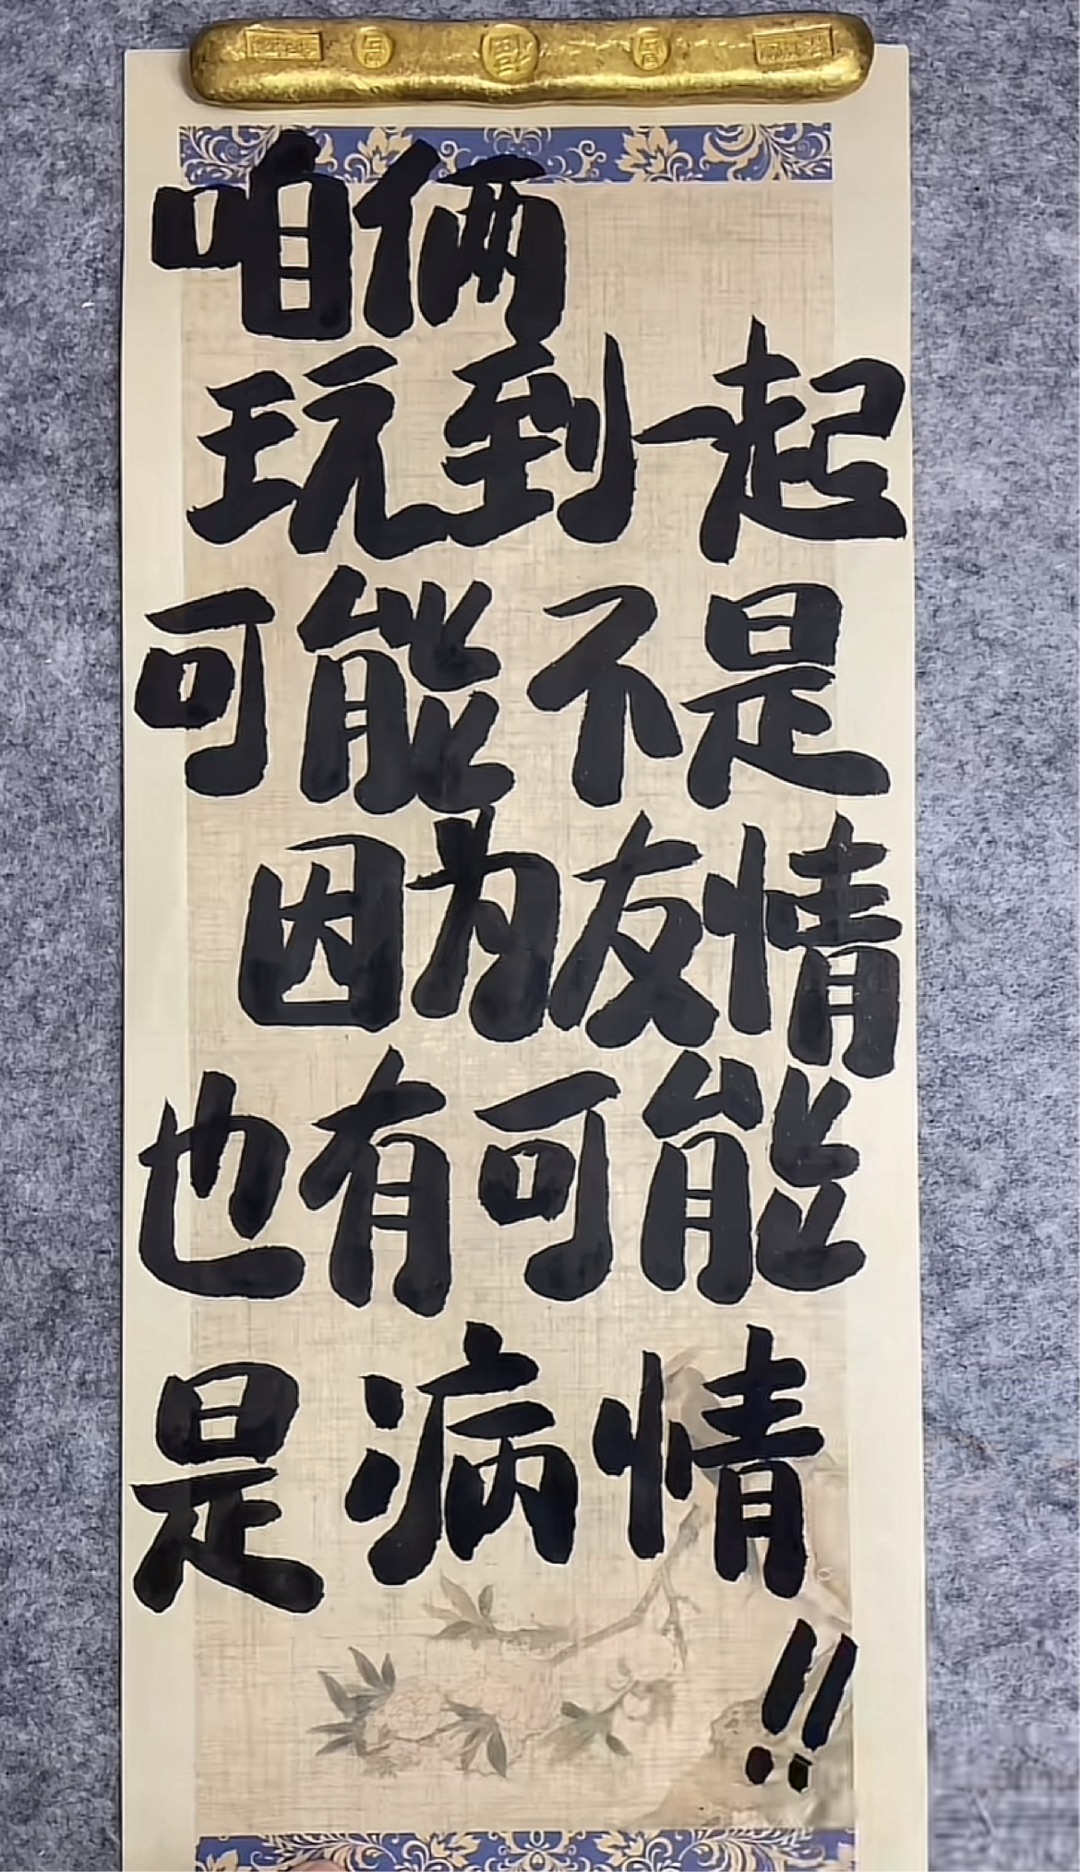 咱俩
玩到一起
可能不是
因为友情
也有可能
是病情
!!